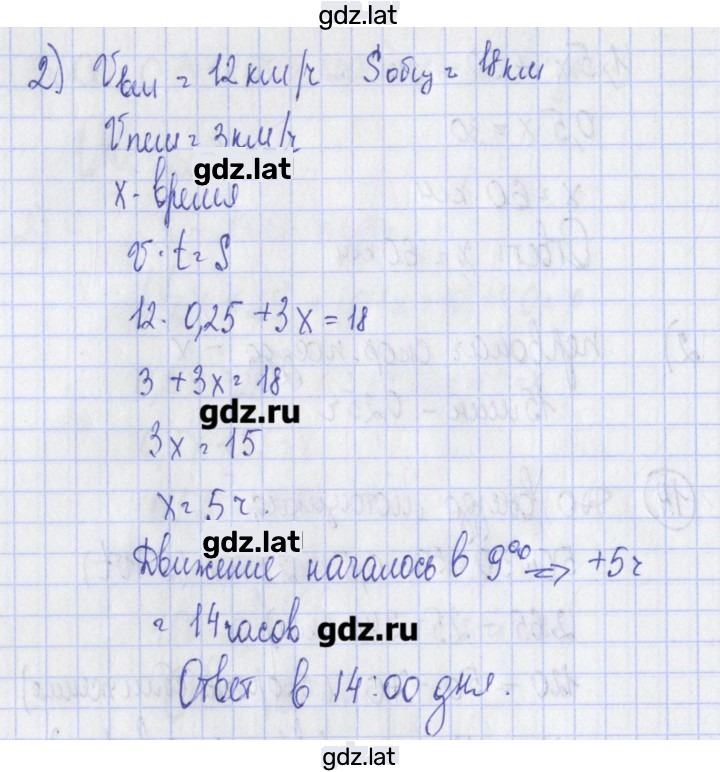 gdz.lat
2) Vвел = 12 км/ч Sобщ = 18 км
Vпеш = 3 км/ч
gdz.lat
x - время
v · t = S
12 · 0,25 + 3x = 18
3 + 3x = 18
gdz.ru
3x = 15
x = 5 ч.
gdz.lat
Движение началось в 9⁰⁰ => +5 ч
= 14 часов
gdz.ru
Ответ в 14:00 дня.
gdz.lat